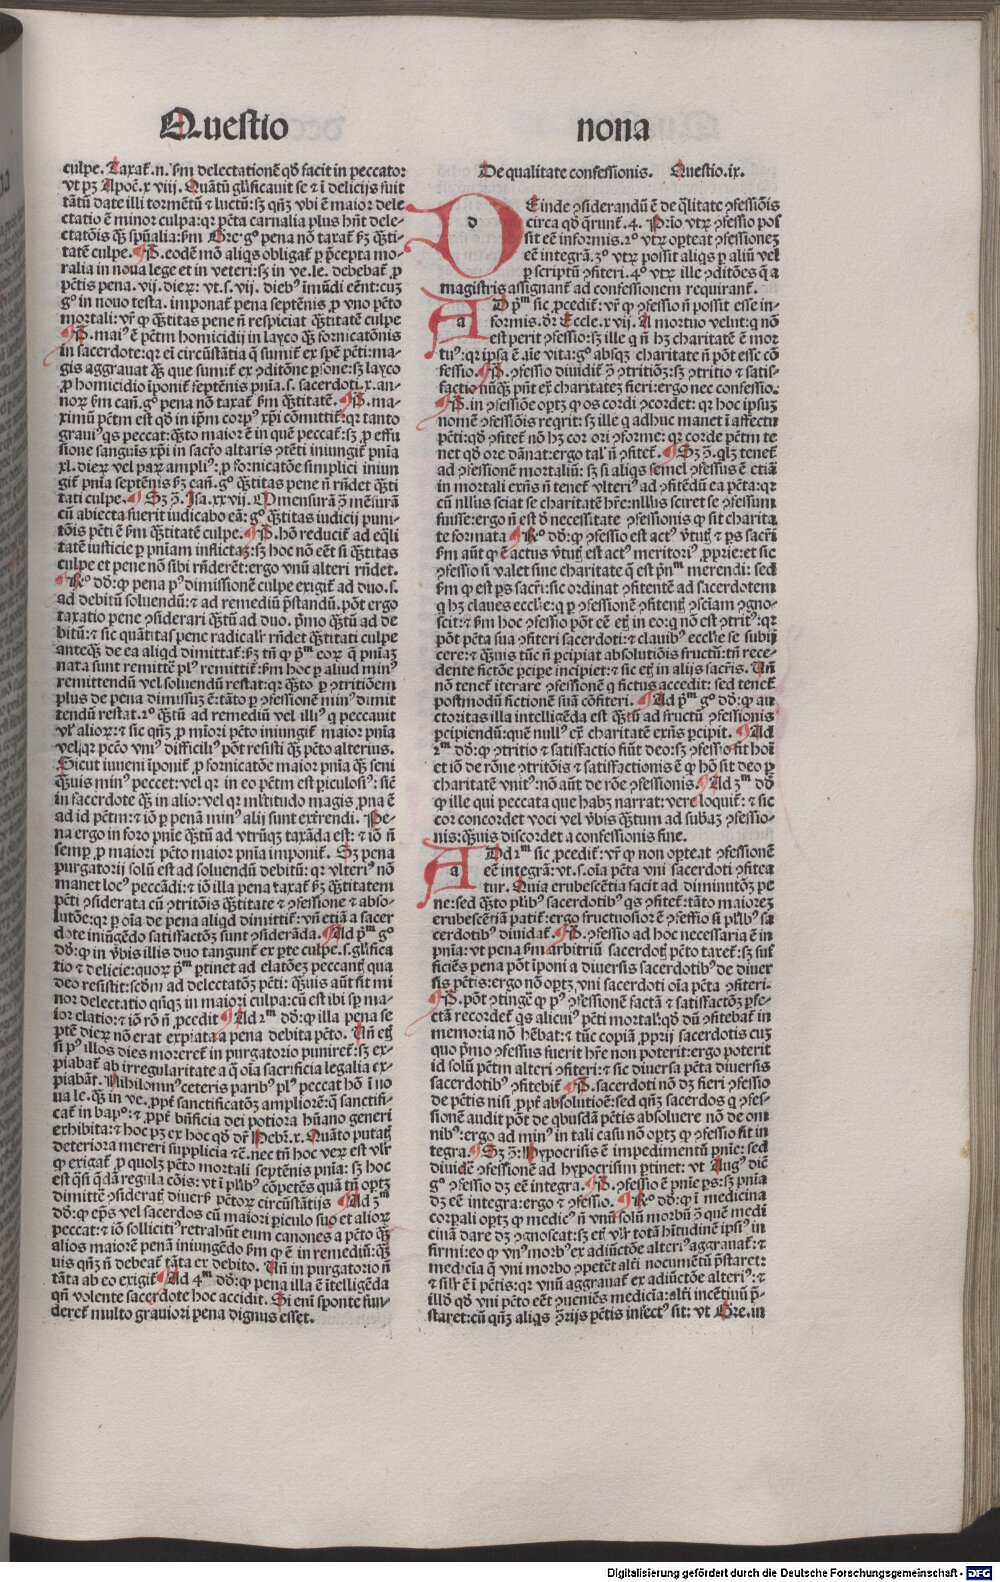 Questio nona
culpe. Taxat͛.n. ẜm delectationē qđ facit in peccator:
vt pꝫ Apoc̄.xviij. Quātū gl̓ificauit se ⁊ ī delicijs fuit
tātū date illi tormētū ⁊ luctū: sꝫ qn̄ꝫ vbi ē maior dele
ctatio ē minor culpa: qꝛ pctā carnalia plus hn̄t dele-
tatē culpe. ¶P. eodē mō aliqs obligat͛ ꝑ p̄cepta mo-
ralia in noua lege et in veteri: sꝫ in ve.le. debebat͛ ꝓ
mortali: vr̄ ꝙ q̄titas pene n̄ respiciat q̄titatē culpe
¶P. maiꝰ ē pctm̄ homicidij in layco q̄ꝫ fornicatōnis
in sacerdote: qꝛ ei circūstātia q̄ sumit͛ ex spē pcti: ma-
gis aggrauat q̄ꝫ que sumit͛ ex ꝯditōne ꝑsone: sꝫ layco
ꝓ homicidio īponit͛ septēnis pn̄ia .s. sacerdoti .x. an-
maximū pctm̄ est qđ in ip̄m corpꝰ xp̄i cōmittit͛: qꝛ tanto
grauiꝰ qs peccat: q̄to maior ē in quē peccat: sꝫ ꝓ effu
sione sanguis xp̄i in sacr̄o altaris ꝯtēti iniungit͛ pn̄ia
tati culpe. ¶Sꝫ ꝯ̄. Isa.xxvij. In mensura ꝯ̄ mēsurā
cū abiecta fuerit iudicabo eā: gͦ q̄titas iudicij puni-
tōis pcti ē ẜm q̄titatē culpe. ¶P. hō reducit͛ ad eq̄li
tatē iusticie ꝑ pn̄iam inflictaꝫ: sꝫ hoc nō eēt si q̄titas
culpe et pene nō sibi rn̄derēt: ergo vnū alteri rn̄det.
¶Rͦ dō: ꝙ pena pꝰ dimissionē culpe exigit͛ ad duo .s.
ad debitū soluendū: ⁊ ad remediū p̄standū. pōt ergo
taxatio pene ꝯsiderari q̄tū ad duo. p̄mo q̄tū ad de
bitū: ⁊ sic quātitas pene radicalr̄ rn̄det q̄titati culpe
anteq̄ꝫ de ea aliqd dimittat͛: ꝟꝫ tn̄ ꝙ p̄ᵐ eoꝝ q̄ pn̄iaꝫ
nata sunt remittē plꝰ remittit͛: ẜm hoc ꝑ aliud minꝰ
remittendū vel soluendū restat: qꝛ q̄to ꝑ ꝯtritiōem
plus de pena dimissuꝫ ē: tāto ꝑ ꝯfessionē minꝰ dimit
tendū restat. 2ͦ q̄tū ad remediū vel illiꝰ q̄ peccauit
vl̓ alioꝝ: ⁊ sic qn̄ꝫ ꝓ miori pctō iniungit͛ maior pn̄ia
vel qꝛ pctō vniꝰ difficiliꝰ pōt resisti q̄ꝫ pctō alterius.
Sicut iuueni īponit͛ ꝓ fornicatōe maior pn̄ia q̄ꝫ seni
q̄uis minꝰ peccet: vel qꝛ in eo pctm̄ est ꝑiculosiꝰ: sic̄
in sacerdote q̄ꝫ in alio: vel qꝛ ml̓titudo magis ꝓna ē
ad id pctm̄: ⁊ iō ꝑ penā minꝰ alij sunt exterrendi. Pe-
na ergo in foro pn̄ie q̄tū ad vtrūqꝫ taxāda est: ⁊ iō n̄
semꝑ ꝓ maiori pctō maior pn̄ia imponit͛. Sꝫ pena
purgatorij solū est ad soluendū debitū: qꝛ vlteriꝰ nō
manet locꝰ peccādi: ⁊ iō illa pena taxat͛ ẜꝫ q̄titatem
pcti ꝯsiderata cū ꝯtritōis q̄titate ⁊ ꝯfessione ⁊ abso-
lutōe: qꝛ ꝑ oīa de pena aliqd dimittit͛: vn̄ etiā a sacer
dote iniūgēdo satisfactōꝫ sunt ꝯsiderāda. ¶Ad p̄ᵐ gͦ
dō: ꝙ in ꝟbis illis duo tangunt͛ ex ꝑte culpe .s. gl̓ifica
tio ⁊ delicie: quoꝝ p̄ᵐ ꝑtinet ad elatōeꝫ peccantꝭ qua
deo resistit: scḋm ad delectatōꝫ pcti: q̄uis aūt sit mi
nor delectatio qn̄qꝫ in maiori culpa: cū est ibi sp̄ ma-
ior elatio: ⁊ iō rō n̄ ꝓcedit ¶Ad 2ᵐ dō: ꝙ illa pena se
ptē dieꝝ nō erat expiata a pena debita pctō. Vn̄ etꝭ
si pꝰ illos dies moreret͛ in purgatorio puniret͛: sꝫ ex-
piabat͛ ab irregularitate a q̄ oīa sacrificia legalia ex-
piabāt. Nihilominꝰ ceteris paribꝰ plꝰ peccat hō ī no
ua le. q̄ꝫ in ve. ꝓpt̄ sanctificatōꝫ ampliorē: q̄ sanctifi-
cat͛ in bapͦ: ⁊ ꝓpt̄ bn̄ficia dei potiora hūano generi
exhibita: ⁊ hoc pꝫ ex hoc qđ dr̄ Hebr̄.x. Quāto putatꝭ
deteriora mereri supplicia ⁊c̄. nec tn̄ hoc veꝝ est vl̓r
ꝙ exigat͛ ꝓ quolꝫ pctō mortali septēnis pn̄ia: sꝫ hoc
est q̄si q̄dā regula cōis: vt ī plꝰibꝰ cōpetēs quā tn̄ optꝫ
dimittē ꝯsideratꝭ diuersꝭ pctōꝝ circūstātijs ¶Ad 3ᵐ
dō: ꝙ ep̄s vel sacerdos cū maiori ꝑiculo suo et alioꝝ
peccat: ⁊ iō sollicitiꝰ retrahūt eum canones a pctō q̄ꝫ
alios maiorē penā iniungēdo ẜm ꝙ ē in remediū: q̄ꝫ
uis qn̄ꝫ n̄ debeat͛ tāta ex debito. Vn̄ in purgatorio n̄
tāta ab eo exigit͛ ¶Ad 4ᵐ dō: ꝙ pena illa ē ītelligēda
qn̄ volente sacerdote hoc accidit. Si eni sponte fun-
deret͛ multo grauiori pena dignus esset.
De qualitate confessionis. Questio.ix.
DEinde ꝯsiderandū ē de q̄litate ꝯfessiōis
circa qđ q̄runt͛ .4. Prīo vtꝝ ꝯfessio pos
sit eē informis. 2ͦ vtꝝ oꝑteat ꝯfessioneꝫ
eē integrā. 3ͦ vtꝝ possit aliqs ꝑ aliū vel
ꝑ scriptū ꝯfiteri. 4ͦ vtꝝ ille ꝯditōes q̄ a
magistris assignant͛ ad confessionem requirant͛.
AD p̄ᵐ sic ꝓcedit͛: vr̄ ꝙ ꝯfessio n̄ possit esse in-
formis. dr̄ Eccle.xvij. A mortuo velut: q̄ nō
est perit ꝯfessio: sꝫ ille q̄ n̄ hꝫ charitatē ē mor
tuꝰ: qꝛ ipsa ē aīe vita: gͦ absqꝫ charitate n̄ pōt esse cō
fessio. ¶P. ꝯfessio diuidit͛ ꝯ̄ ꝯtritiōꝫ: sꝫ ꝯtritio ⁊ satis-
factio nūq̄ꝫ pn̄t ex̄ charitateꝫ fieri: ergo nec confessio.
¶P. in ꝯfessiōe optꝫ ꝙ os cordi ꝯcordet: qꝛ hoc ipsuꝫ
nomē ꝯfessiōis reqrit: sꝫ ille q̄ adhuc manet ī affectu
pcti: qđ ꝯfitet͛ nō hꝫ cor ori ꝯforme: qꝛ corde pctm̄ te
net qđ ore dānat: ergo tal̓ n̄ ꝯfitet͛. ¶Sꝫ ꝯ̄. qlꝫ tenet͛
ad ꝯfessionē mortaliū: sꝫ si aliqs semel ꝯfessus ē etiā
in mortali exn̄s n̄ tenet͛ vlteriꝰ ad ꝯfitēdū ea pctā: qꝛ
cū nllus sciat se charitatē hr̄e: nllus sciret se ꝯfessum
fuisse: ergo n̄ est ḋ necessitate ꝯfessionis ꝙ sit charita
te formata ¶Rͦ dō: ꝙ ꝯfessio est actꝰ ꝟtutꝭ ⁊ ps sacr̄i
ẜm aūt ꝙ ē actus ꝟtutꝭ est actꝰ meritoriꝰ ꝓprie: et sic
ꝯfessio n̄ valet sine charitate q̄ est pn̄ᵐ merendi: sed
ẜm ꝙ est ps sacr̄i: sic ordinat ꝯfitentē ad sacerdotem
q̄ hꝫ claues eccl̓ie: q̄ ꝑ ꝯfessionē ꝯfitentꝭ ꝯsciam ꝯgno-
scit: ⁊ ẜm hoc ꝯfessio pōt eē etꝭ in eo: q̄ nō est ꝯtritꝰ: qꝛ
pōt pctā sua ꝯfiteri sacerdoti: ⁊ clauibꝰ eccl̓ie se subij
cere: ⁊ q̄uis tūc n̄ ꝑcipiat absolutiōis fructū: tn̄ rece-
dente fictōe ꝑcipe incipiet: ⁊ sic etꝭ in alijs sacr̄is. Vn̄
nō tenet͛ iterare ꝯfessionē q̄ fictus accedit: sed tenet͛
postmodū fictionē suā cōfiteri. ¶Ad p̄ᵐ gͦ dō: ꝙ au
ctoritas illa intelligēda est q̄tū ad fructū ꝯfessionis
ꝑcipiendū: quē nullꝰ ex̄ charitatē exn̄s ꝑcipit. ¶Ad
2ᵐ dō: ꝙ ꝯtritio ⁊ satisfactio fiūt deo: sꝫ ꝯfessio fit hoī
et iō de rōne ꝯtritōis ⁊ satisfactionis ē ꝙ hō sit deo ꝑ
charitatē vnitꝰ: nō aūt de rōe ꝯfessionis. ¶Ad 3ᵐ dō
ꝙ ille qui peccata que habꝫ narrat: vere loquit͛: ⁊ sic
cor concordet voci vel ꝟbis q̄tum ad sub̄aꝫ ꝯfessio-
nis: q̄uis discordet a confessionis fine.
AD 2ᵐ sic ꝓcedit͛: vr̄ ꝙ non oꝑteat ꝯfessionē
eē integrā: vt .s. oīa pctā vni sacerdoti ꝯfitea
tur. Quia erubescētia facit ad diminutōꝫ pe
ne: sed q̄to plꝰibꝰ sacerdotibꝰ qs ꝯfitet͛: tāto maioreꝫ
erubescētiā patit͛: ergo fructuosior ē ꝯfessio si plꝰibꝰ sa
cerdotibꝰ diuidat͛. ¶P. ꝯfessio ad hoc necessaria ē in
pn̄ia: vt pena ẜm arbitriū sacerdotꝭ pctō taxet͛: sꝫ suf
ficiēs pena pōt īponi a diuersis sacerdotibꝰ de diuer
sis pctis: ergo nō optꝫ vni sacerdoti oīa pctā ꝯfiteri.
¶P. pōt ꝯtingē ꝙ pꝰ ꝯfessionē factā ⁊ satisfactōꝫ ꝑfe-
ctā recordet͛ qs alicuiꝰ pcti mortal̓: qđ dū ꝯfitebat͛ in
memoria nō hēbat: ⁊ tūc copiā ꝓprij sacerdotis cuꝫ
quo p̄mo ꝯfessus fuerit hr̄e non poterit: ergo poterit
id solū pctm̄ alteri ꝯfiteri: ⁊ sic diuersa pctā diuersis
sacerdotibꝰ ꝯfitebit͛ ¶P. sacerdoti nō dꝫ fieri ꝯfessio
de pctis nisi ꝓpt̄ absolutioē: sed qn̄ꝫ sacerdos q̄ ꝯfes-
sionē audit pōt de q̄busdā pctis absoluere nō de om
nibꝰ: ergo ad minꝰ in tali casu nō optꝫ ꝙ ꝯfessio sit in
tegra. ¶Sꝫ ꝯ̄. Hypocrisis ē impedimentū pn̄ie: sed
diuidē ꝯfessionē ad hypocrisim ꝑtinet: vt Augꝰ dic̄
gͦ ꝯfessio dꝫ eē integra. ¶P. ꝯfessio ē pn̄ie ps: sꝫ pn̄ia
dꝫ eē integra: ergo ⁊ ꝯfessio. ¶Rͦ dō: ꝙ ī medicina
corꝑali optꝫ ꝙ medicꝰ n̄ vnū solū morbū ꝯ̄ quē medi
cinā dare dꝫ ꝯgnoscat: sꝫ etꝭ vl̓r totā hītudinē ipsiꝰ in
firmi: eo ꝙ vnꝰ morbꝰ ex adiūctōe alteriꝰ aggrauat͛: ⁊
medicīa q̄ vni morbo ꝯpetēt alti nocumētū p̄staret:
⁊ sil̓r ē ī pctis: qꝛ vnū aggrauat͛ ex adiūctōe alteriꝰ: ⁊
illḋ qđ vni pctō eēt ꝯueniēs medicīa: alti incētiuū p̄-
staret: cū qn̄ꝫ aliqs ꝯ̄rijs pctis infectꝰ sit: vt Gre. in
Digitalisierung gefördert durch die Deutsche Forschungsgemeinschaft - DFG